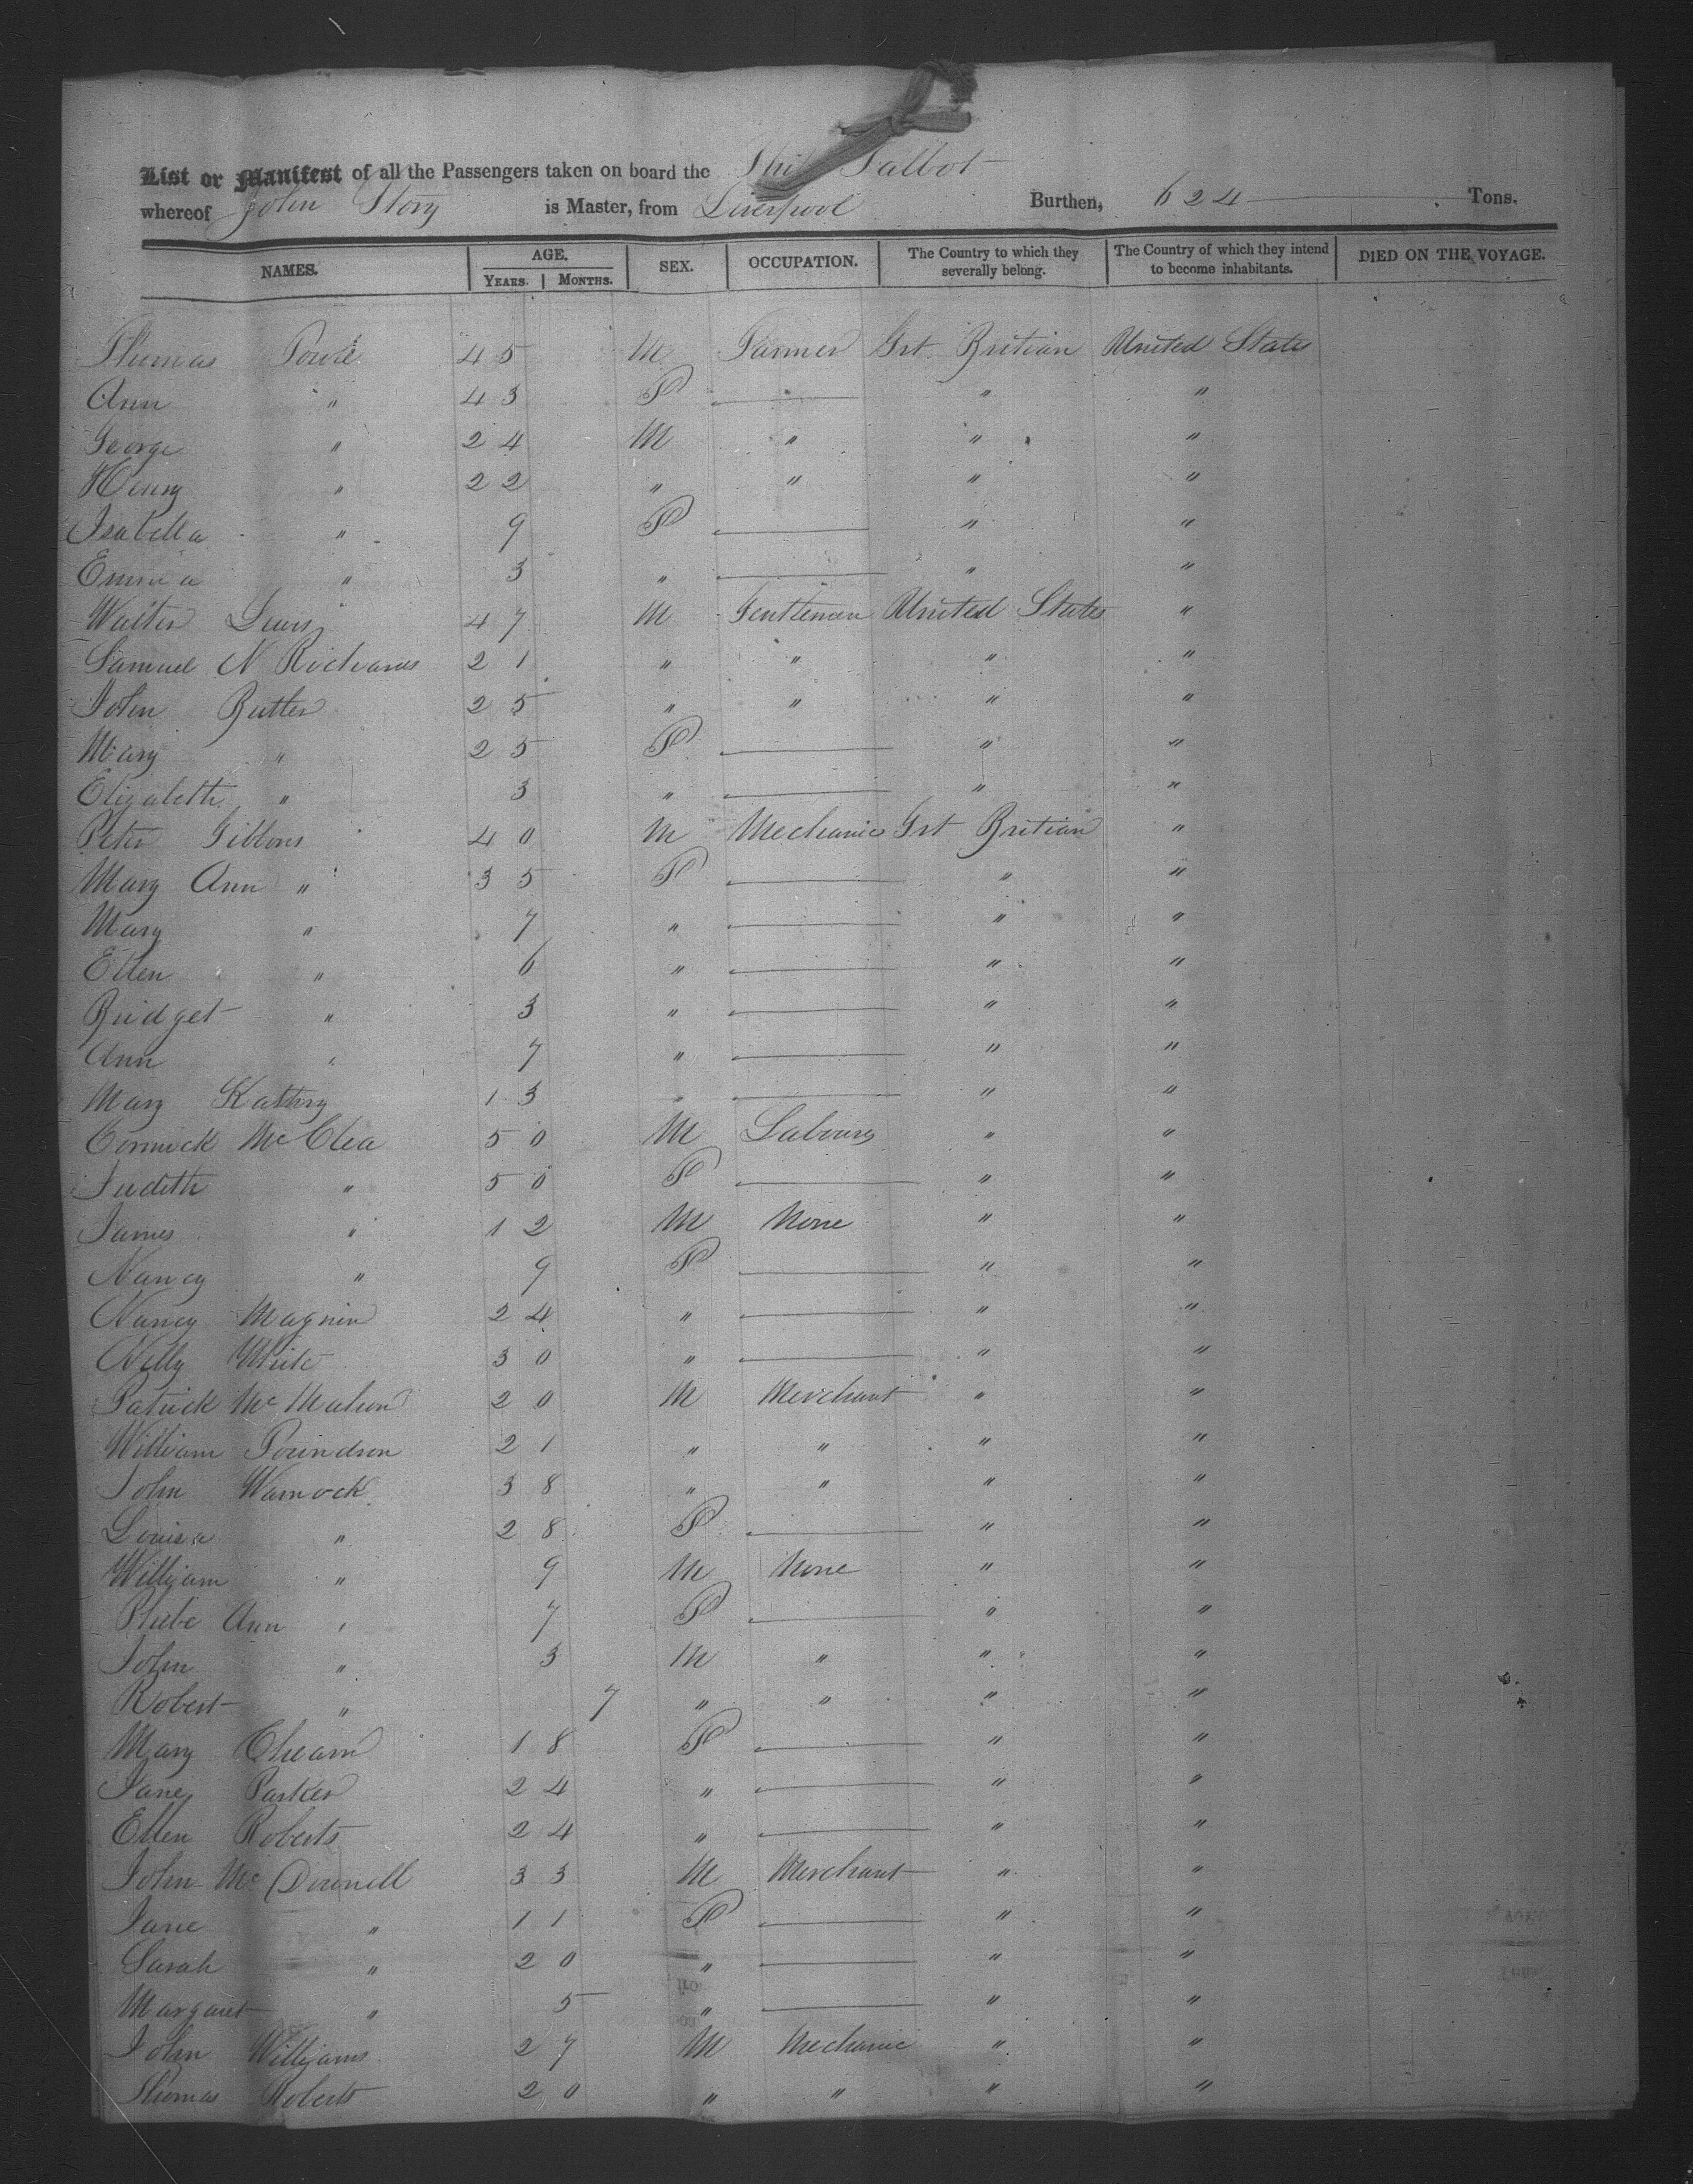 List or Manifest of all the Passengers taken on board the Ship Talbot
whereof John Story is Master, from Liverpool Burthen, 624 Tons.
NAMES. AGE. YEARS. MONTHS. SEX. OCCUPATION. The Country to which they severally belong. The Country of which they intend to become inhabitants. DIED ON THE VOYAGE.
Thomas 45 M Farmer Grt Britian United States
Ann " 43 F " "
George " 24 M " " "
Henry " 22 " " " "
Isabella " 9 F " "
Emma " 3 " " "
Walter Lewis 47 M Gentleman United States "
Samuel N Richards 21 " " " "
John Butler 25 " " " "
Mary " 25 F " "
Elizabeth " 3 " " "
Peter Gibbons 40 M Mechanic Grt Britian "
Mary Ann " 35 F " "
Mary " 7 " " "
Ellen " 6 " " "
Bridget " 3 " " "
Ann " 7 " " "
Mary 13 " " "
Cormick McClea 50 M Labourer " "
Judith " 50 F " "
James " 12 M None " "
Nancy " 9 F " "
Nancy 24 " " "
Nelly White 30 " " "
Patrick McMahon 20 M Merchant " "
William 21 " " " "
John Warnock 38 " " " "
Louisa " 28 F " "
William " 9 M None " "
Phebe Ann " 7 F " "
John " 3 M " " "
Robert " 7 " " " "
Mary 18 F " "
Jane Parker 24 " " "
Ellen Roberts 24 " " "
John McDonnell 33 M Merchant " "
Jane " 11 F " "
Sarah " 20 " " "
Margaret " 5 " " "
John Williams 27 M Mechanic " "
Thomas Roberts 20 " " " "